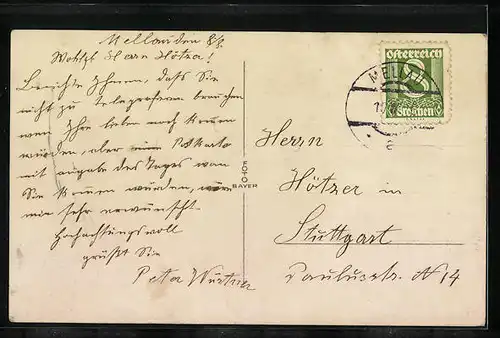 Mellau den
Herr Hötzer!
Berichte Ihnen, dass Sie
nicht zu telegrafieren brauchen
wen Ihre noch kommen
würden, aber Postkarte
mit angabe des Tages wan
Sie kommen würden,
mir sehr erwünscht
Hochachtungsvoll
grüßt Sie
Peter
FOTO
BAYER
Österreich
8
Groschen
MELLAU
Herrn
Hötzer in
Stuttgart
Paulusstr. N 14